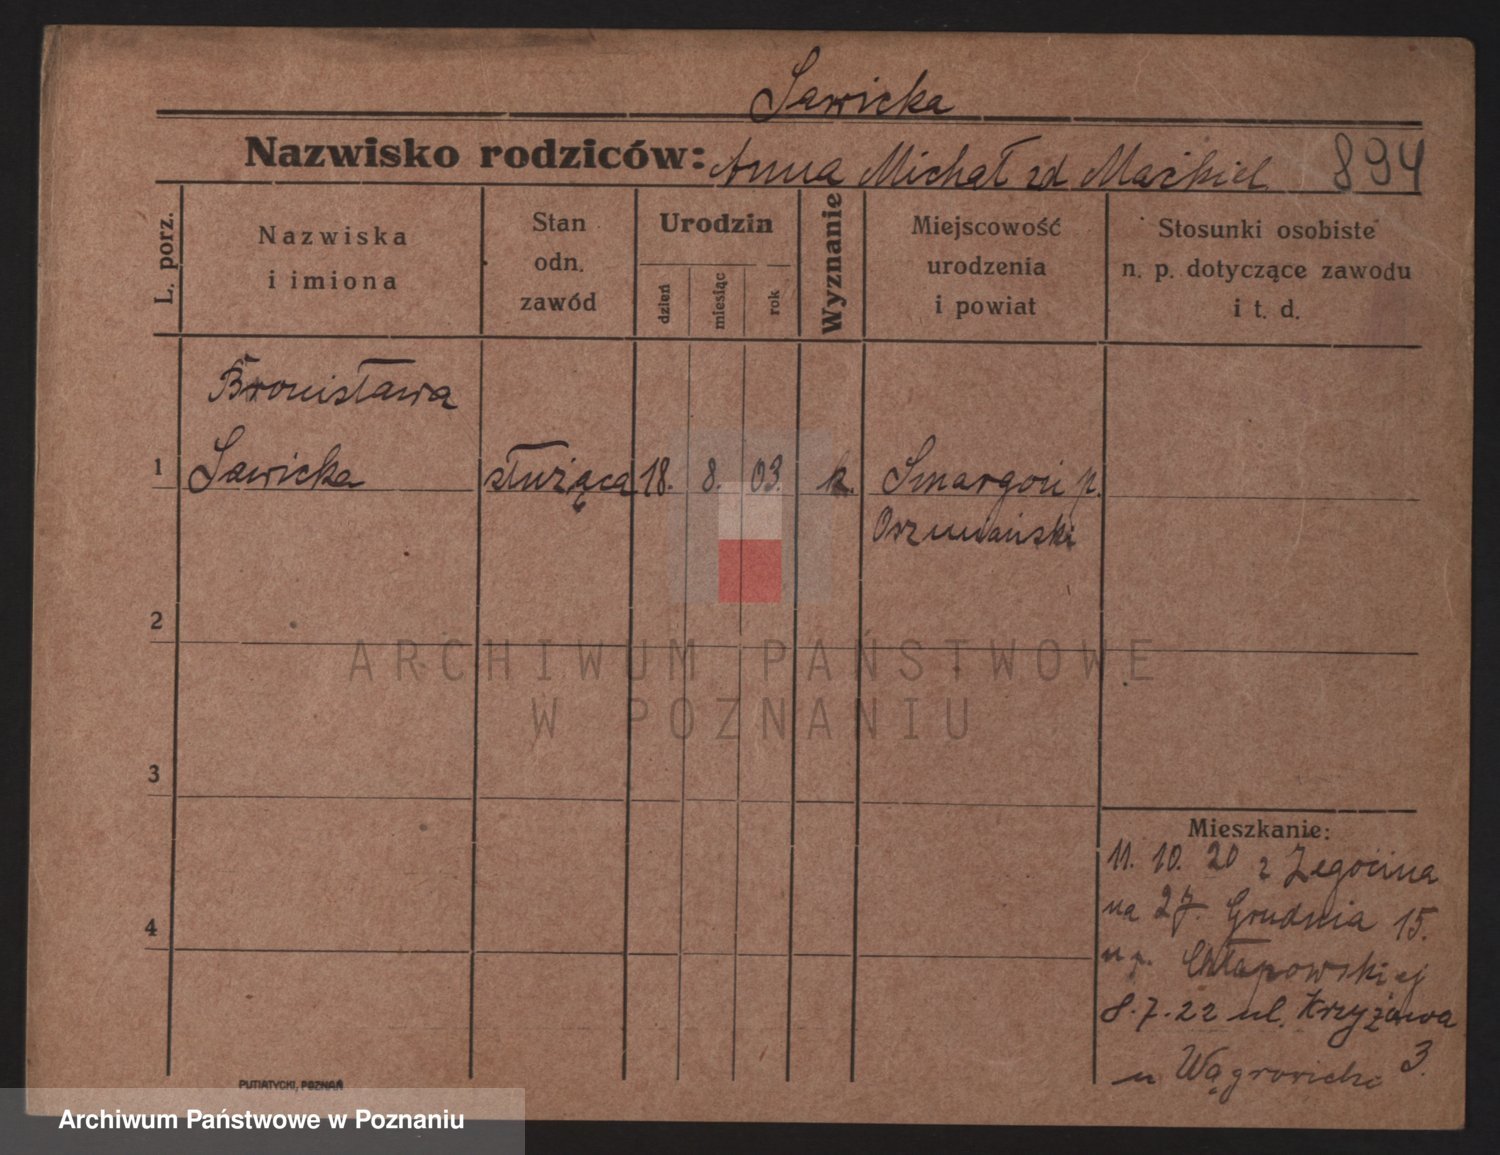 Sawicka
Nazwisko rodziców: Anna Michał zd Maćkiel 894
L. porz.
Nazwiska
i imiona
Stan
odn.
zawód
Urodzin
dzień
miesiąc
rok
Wyznanie
Miejscowość
urodzenia
i powiat
Stosunki osobiste
n. p. dotyczące zawodu
i t. d.
Bronisława
1 Sawicka służąca 18. 8. 03. k. Smargoń p.
Oszmiański
2
3
4
Mieszkanie:
11. 10. 20 z Żegocina
na 27. Grudnia 15.
u p. Chłapowskiej
8.7.22 ul. Krzyżowa
3.
u Wągrowicka
PUTIATYCKI, POZNAŃ
ARCHIWUM PAŃSTWOWE
W POZNANIU
Archiwum Państwowe w Poznaniu